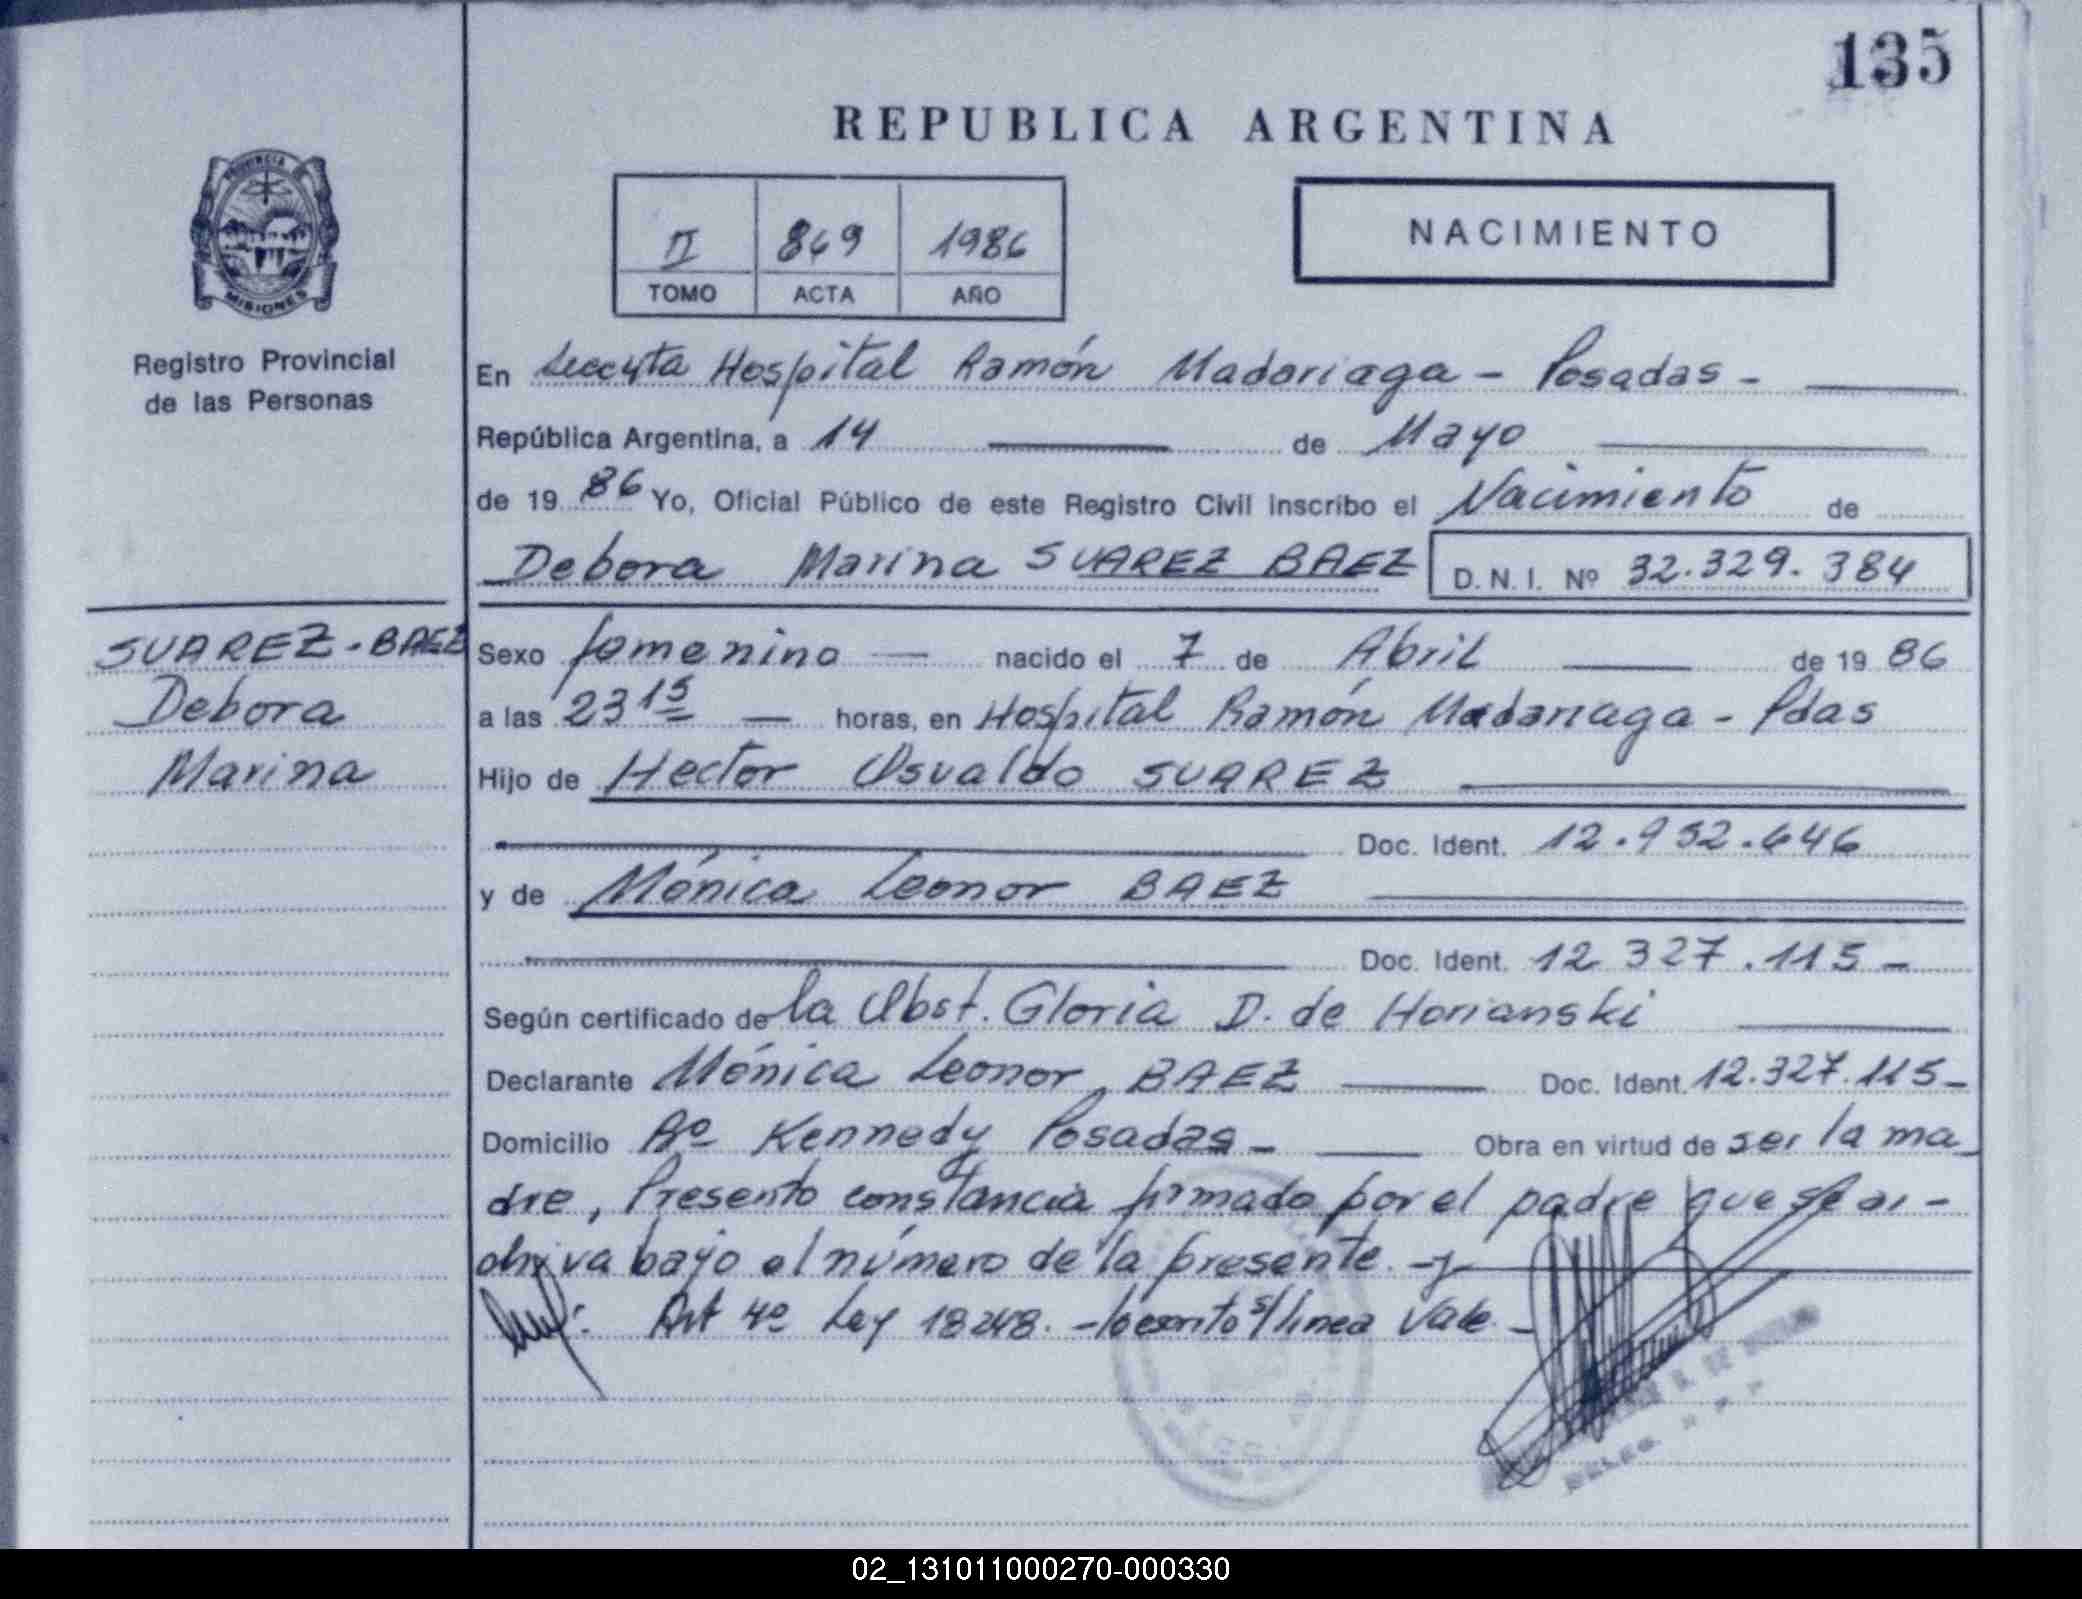 135
REPUBLICA ARGENTINA
PROVINCIA DE
MISIONES
II 869 1986
TOMO ACTA AÑO
NACIMIENTO
Registro Provincial
de las Personas
En Seccyta Hospital Ramón Madariaga - Posadas -
República Argentina, a 14 de Mayo
de 19 86 Yo, Oficial Público de este Registro Civil inscribo el Nacimiento de
Debora Marina SUAREZ BAEZ D.N.I. Nº 32.329.384
SUAREZ-BAEZ
Debora
Marina
Sexo femenino nacido el 7 de Abril de 19 86
a las 23 15 horas, en Hospital Ramón Madariaga - Pdas
Hijo de Hector Osvaldo SUAREZ
Doc. Ident. 12.952.646
y de Mónica Leonor BAEZ
Doc. Ident. 12 327.115 -
Según certificado de la Obst. Gloria D. de Horianski
Declarante Mónica Leonor BAEZ Doc. Ident. 12.327.115-
Domicilio Bº Kennedy Posadas - Obra en virtud de ser la ma
dre, Presento constancia firmada por el padre que se ar-
chiva bajo el número de la presente.-
Art 4º Ley 18248. - lo escrito s/linea Vale -
DELEG.
02_131011000270-000330